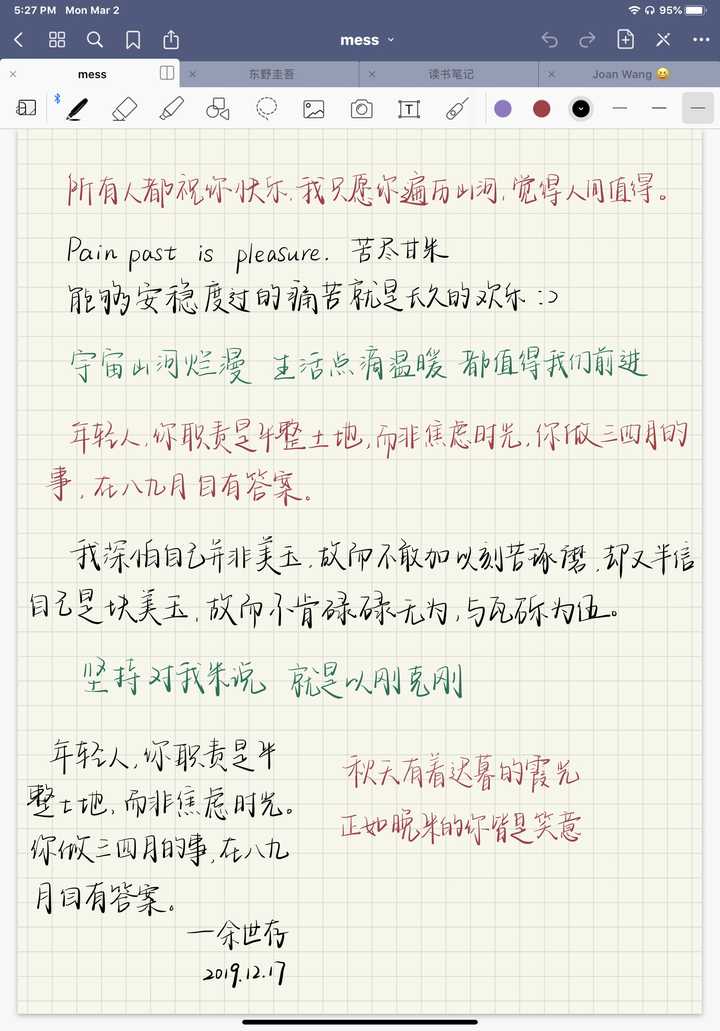 5:27 PM Mon Mar 2 95%
mess
mess 东野圭吾 读书笔记 Joan Wang 😀
所有人都祝你快乐,我只愿你遍历山河,觉得人间值得。
Pain past is pleasure. 苦尽甘来
能够安稳度过的痛苦就是长久的欢乐:)
宇宙山河烂漫 生活点滴温暖 都值得我们前进
年轻人,你职责是平整土地,而非焦虑时光,你做三四月的
事,在八九月自有答案。
我深怕自己并非美玉,故而不敢加以刻苦琢磨,却又半信
自己是块美玉,故而不肯碌碌无为,与瓦砾为伍。
坚持对我来说 就是以刚克刚
年轻人,你职责是平
整土地,而非焦虑时光。
你做三四月的事,在八九
月自有答案。
—余世存
2019.12.17
秋天有着迟暮的霞光
正如晚来的你皆是笑意